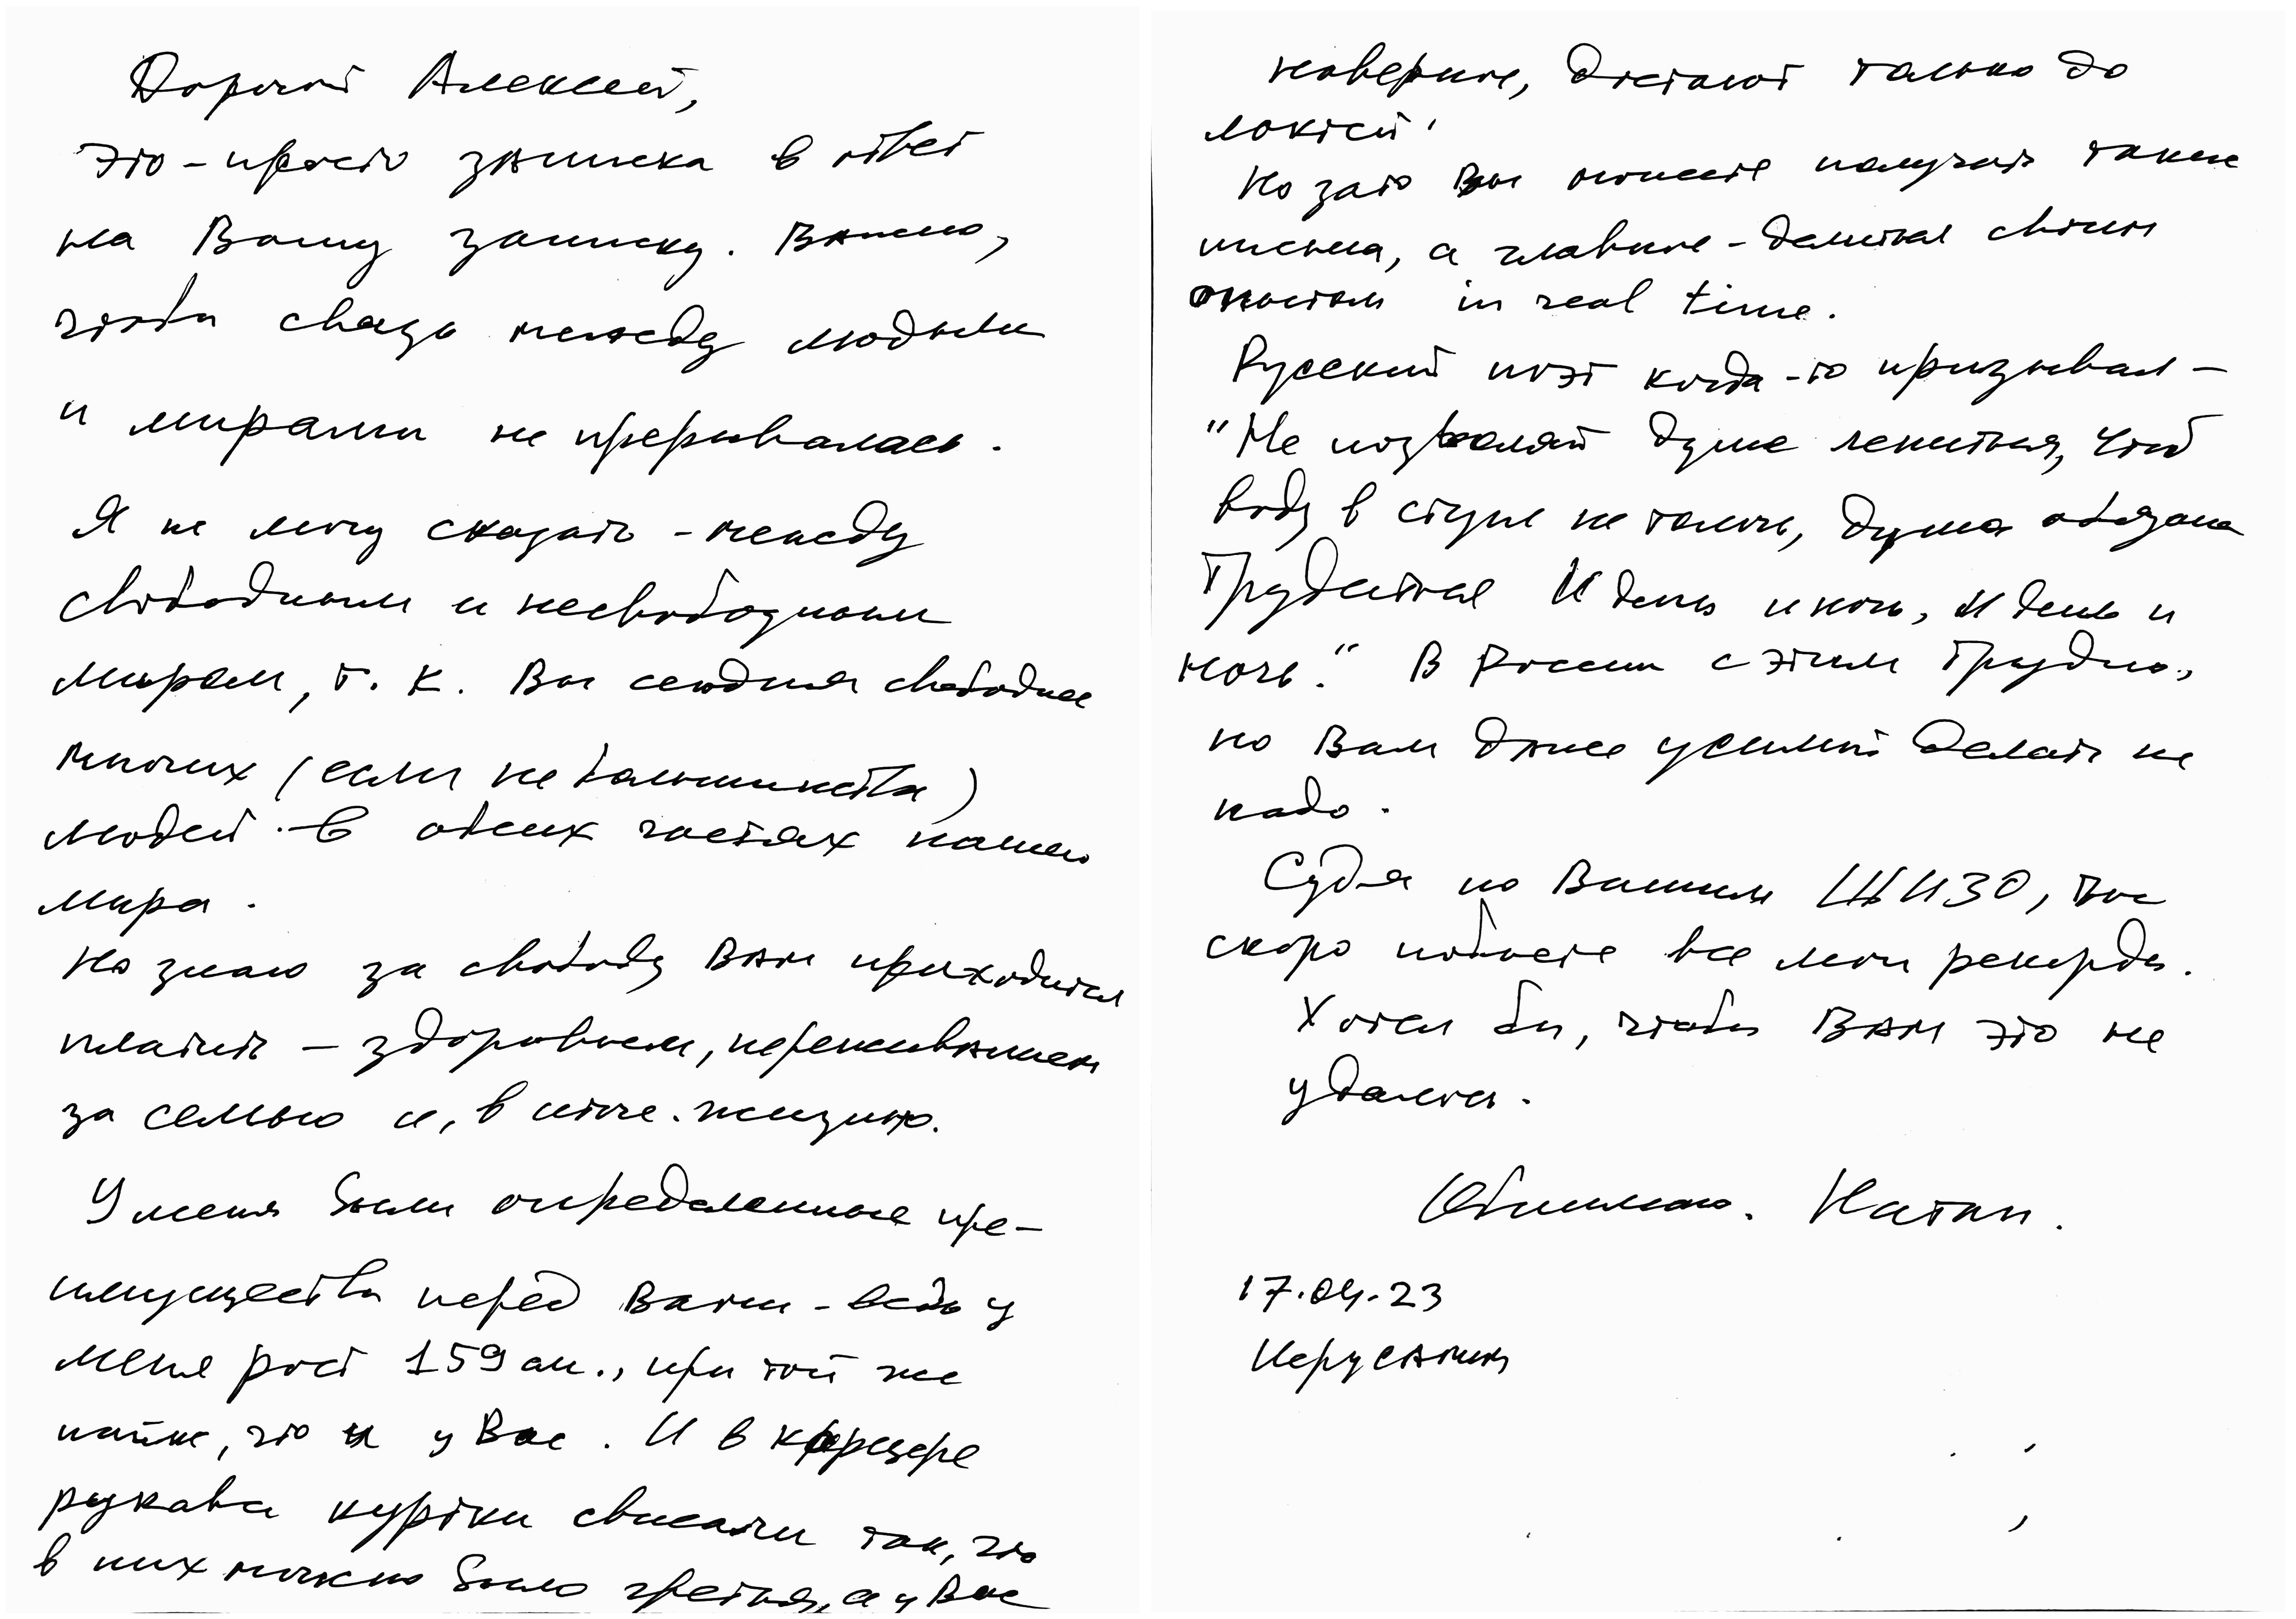 Дорогой Алексей,
это - просто записка в ответ
на Вашу записку. Важно,
чтобы связь между людьми
и мирами не прерывалась.
Я не могу сказать - между
свободным и несвободным
миром, т. к. Вы сегодня свободнее
многих (если не большинства)
людей в обеих частях нашего
мира.
Но знаю за свободу Вам приходится
платить - здоровьем, переживанием
за семью и, в итоге. жизнью.
У меня были определенные пре-
имущества перед Вами - ведь у
меня рост 159 см., при той же
пайке, что и у Вас. И в карцере
рукава куртки свисали так, что
в них можно было греться, а у Вас
наверное, достают только до
локтей.
Но зато Вы можете получать такие
письма, а главное - делиться своим
опытом in real time.
Русский поэт когда-то призывал -
"Не позволяй душе лениться, Чтоб
воду в ступе не толочь, душа обязана
Трудиться И день и ночь, И день и
ночь." В России с этим трудно,
но Вам даже усилий делать не
надо.
Судя по Вашим ШИЗО, Вы
скоро побьете все мои рекорды.
Хотел бы, чтобы Вам это не
удалось.
Обнимаю. Натан.
17.04.23
Иерусалим